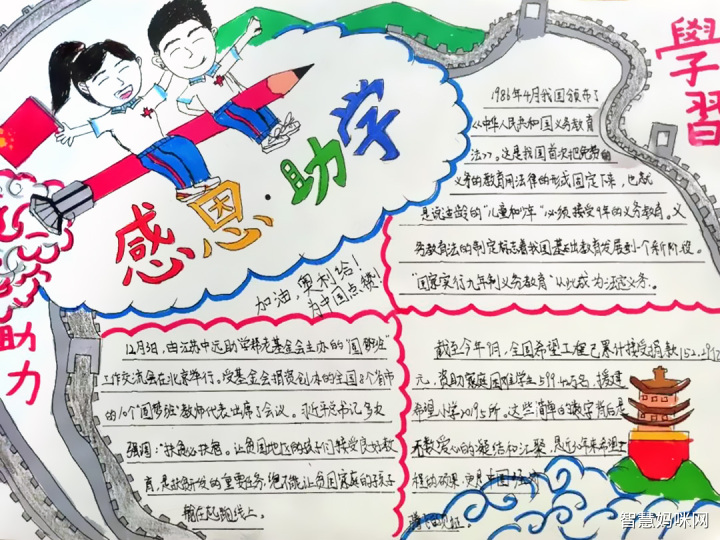 學習
感恩·助学
加油,奥利给!
为中国点赞!
助力
1986年4月我国颁布了
《中华人民共和国义务教育
法》。这是我国首次把免费的
义务的教育用法律的形式固定下来,也就
是说适龄的"儿童和少年"必须接受9年的义务教育。义
务教育法的制定标志着我国基础教育发展到一个新阶段。
"国家实行九年制义务教育"从此成为法定义务。
12月3日,由江苏中远助学
基金会主办的"圆梦班"
工作交流会在北京举行。受基金会捐资创办的全国8个省市
的10个"圆梦班"教师代表出席了会议。习近平总书记多次
强调:"扶贫必扶智。让贫困地区的孩子们接受良好教
育,是扶贫开发的重要任务,绝不能让贫困家庭的孩子
输在起跑线上。
截至今年1月,全国希望工程已累计接受捐款152.29亿
元,资助家庭困难学生599.42万名,援建
希望小学20195所。这些简单的数字背后是
无数爱心的凝结和汇聚,是近30年来希望工
程的硕果,更是中国
智慧妈咪网